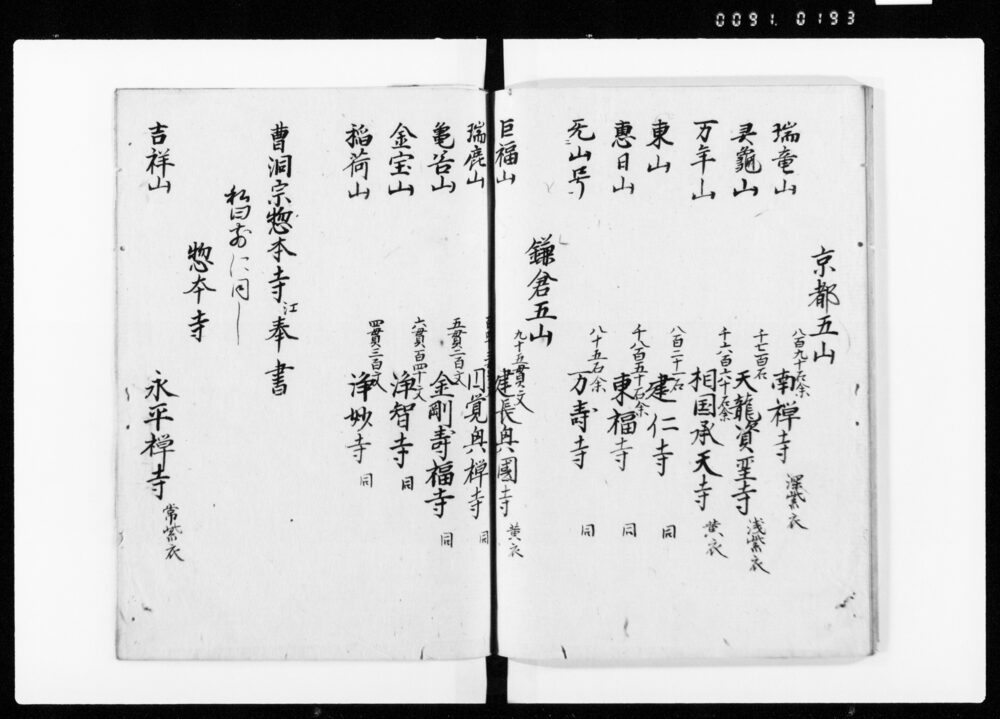 0091. 0193
京都五山
瑞竜山 八百九十石余 南禅寺 深紫衣
灵龜山 千七百石 天龍資聖寺 浅紫衣
万年山 千六百六十石余 相国承天寺 黄衣
東山 八百二十一石 建仁寺 同
惠日山 千八百五十石余 東福寺 同
无山号 八十五石余 万壽寺 同
鎌倉五山
巨福山 九十五貫文 建長興國寺 黄衣
瑞鹿山 円覚興禅寺 同
亀谷山 五貫二百文 金剛壽福寺 同
金宝山 六貫百四十文 浄智寺 同
稲荷山 四貫三百文 浄妙寺 同
曹洞宗惣本寺江奉書
私曰前ニ同し
惣本寺
吉祥山 永平禅寺 常紫衣